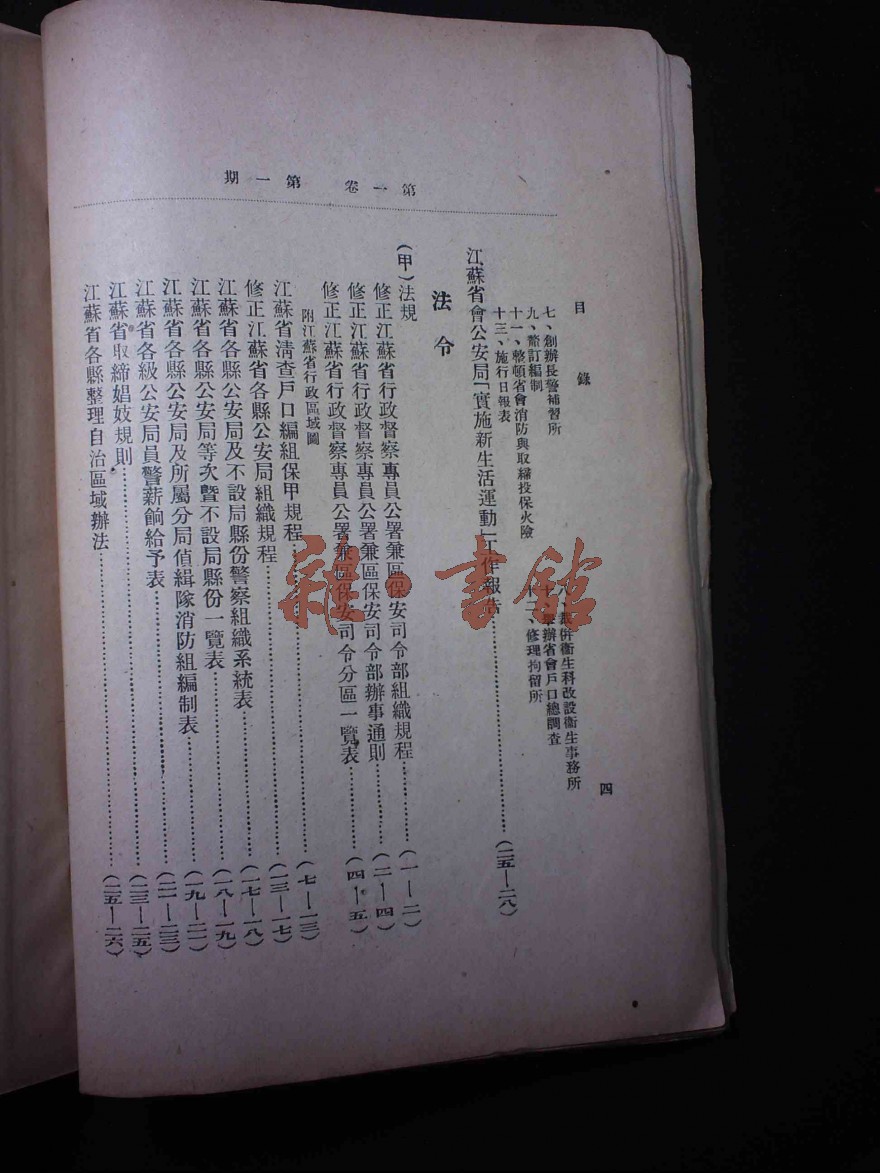 第一卷 第一期
目錄 四
七、創辦長警補習所 八、裁併衞生科改設衞生事務所
九、釐訂編制 十、舉辦省會戶口總調查
十一、整頓省會消防與取締投保火險 十二、修理拘留所
十三、施行日報表
江蘇省會公安局「實施新生活運動」工作報告……(二五—二八)
法令
(甲)法規
修正江蘇省行政督察專員公署兼區保安司令部組織規程……(一—二)
修正江蘇省行政督察專員公署兼區保安司令部辦事通則……(二—四)
修正江蘇省行政督察專員公署兼區保安司令分區一覽表……(四—五)
附江蘇省行政區域圖
江蘇省清查戶口編組保甲規程……(七—一三)
修正江蘇省各縣公安局組織規程……(一三—一七)
江蘇省各縣公安局及不設局縣份警察組織系統表……(一七—一八)
江蘇省各縣公安局等次暨不設局縣份一覽表……(一八—一九)
江蘇省各縣公安局及所屬分局偵緝隊消防組編制表……(一九—二一)
江蘇省各級公安局員警薪餉給予表……(二一—二三)
江蘇省取締娼妓規則……(二三—二五)
江蘇省各縣整理自治區域辦法……(二五—二六)
雜·書館